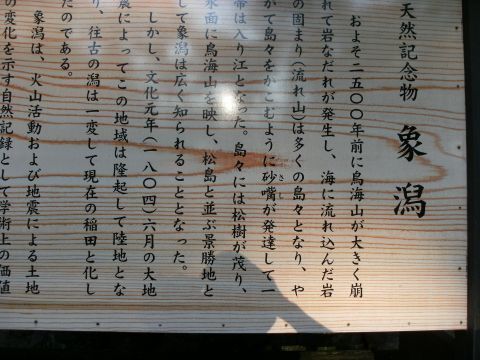 天然記念物 象潟
およそ二五〇〇年前に鳥海山が大きく崩
れて岩なだれが発生し、海に流れ込んだ岩
の固まり(流れ山)は多くの島々となり、や
がて島々をかこむように砂嘴が発達して一
帯は入り江となった。島々には松樹が茂り、
水面に鳥海山を映し、松島と並ぶ景勝地と
して象潟は広く知られることとなった。
しかし、文化元年(一八〇四)六月の大地
震によってこの地域は隆起して陸地とな
り、往古の潟は一変して現在の稲田と化し
たのである。
象潟は、火山活動および地震による土地
の変化を示す自然記録として学術上の価値